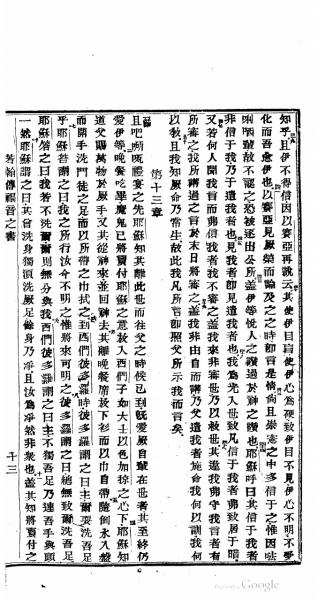 知乎且伊不得信因以賽亞再說云其使伊目盲使伊心為硬致伊目不見伊心不明不愛
化而吾愈伊也以賽亞見厥榮而論及之之時即言是情尚且崇憲之中多信于之惟因呿
輩故不認之恐被逐出公所蓋伊等悅人之讚過於神之讚也耶穌呼曰其信于我者
非信于我乃于遣我者也見我者即見遣我者也我為光入世致凡信于我者弗致居于暗
又若何人聞我言而弗信我者我不審之蓋我來非審世乃以救世其違我弗守我言者有
所審之我所講過之言於末日將審之蓋我非由自而講乃父遣我者施命我何以訓我何
以教且我知厥命乃常生也故此我凡所言即照父所示我而言矣
第十三章
且吧禮宴之先耶穌知其離此世而往父之時候已到既愛厥自輩在世者其至終仍
愛伊等晚餐吃畢魔鬼已將賣付耶穌之意放入西們子如大士以色加掠之心下耶穌知
道父賜萬物於厥手又其從神來並回神去其離晚餐席放下衫而以巾自帶隨倒水入盤
而開手洗門徒之足而以所帶之巾拭之到西們彼多羅時彼多羅謂之曰主爾要洗吾足
乎耶穌答謂之曰我之所行汝今不明之惟將來可明之彼多羅謂之曰總無致爾洗吾足
耶穌答之曰我若不洗爾爾則無分與我西們彼多羅謂之曰主不獨吾足乃連吾手與頭
一然耶穌謂之曰其曾洗身獨須洗厥足餘身乃凈且汝為凈然非衆也蓋其知將賣付之
若翰傳福音之書
十三
Google